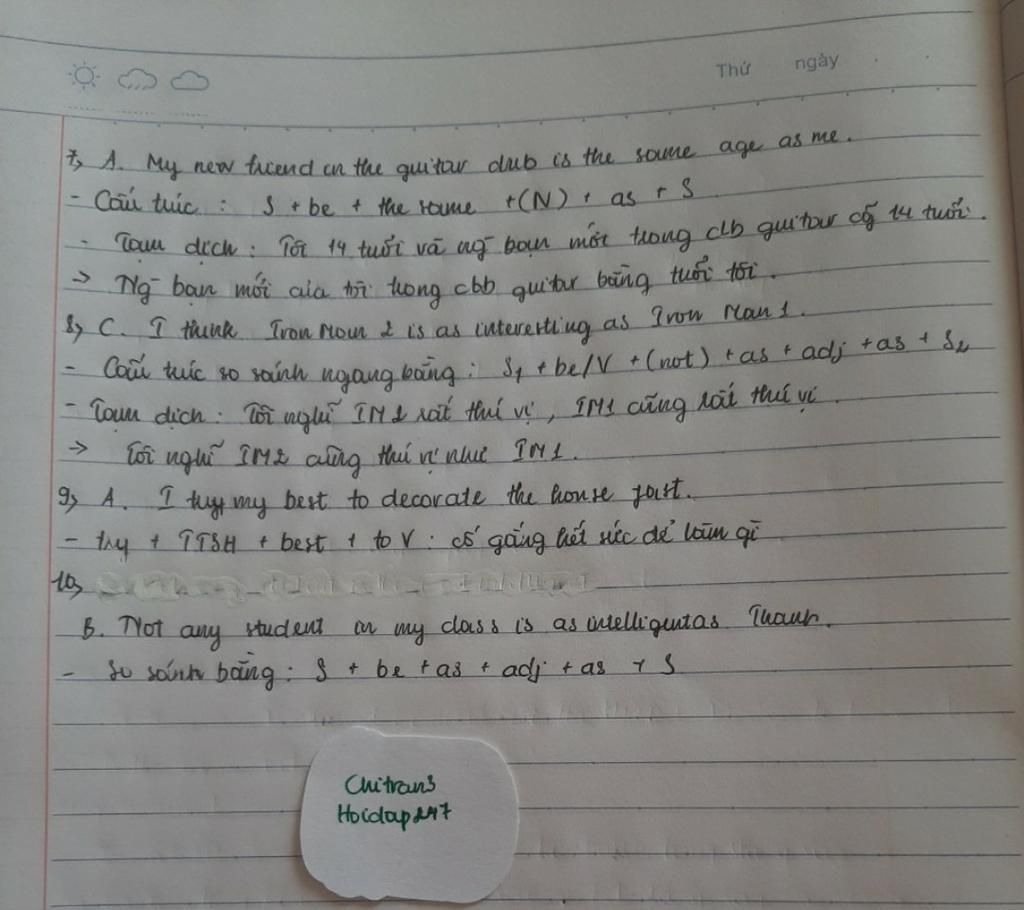 Thứ ngày
7, A. My new friend in the guitar club is the same age as me.
- Cấu trúc : S + be + the same +(N) + as + S
- Tạm dịch : Tôi 14 tuổi và ng̃ bạn mới trong clb guitar cũng 14 tuổi.
-> Ng̃ bạn mới của tôi trong clb guitar bằng tuổi tôi.
8, C. I think Iron Man 2 is as interesting as Iron Man 1.
- Cấu trúc so sánh ngang bằng : S1 + be/V + (not) + as + adj + as + S2
- Tạm dịch : Tôi nghĩ IM2 rất thú vị, IM1 cũng rất thú vị
-> Tôi nghĩ IM2 cũng thú vị như IM1.
9, A. I try my best to decorate the house fast.
- try + TTSH + best + to V : cố gắng hết sức để làm gì
10,
B. Not any student in my class is as intelligent as Thanh.
- So sánh bằng : S + be + as + adj + as + S
Chitran3
Hoidap247